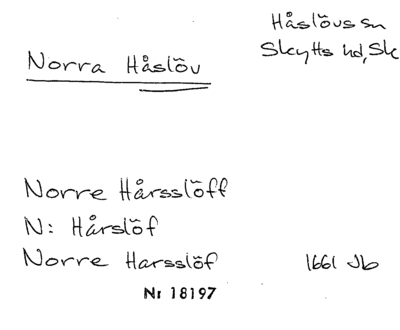 Håslövs sn
Skytts hd, Sk
Norra Håslöv
Norre Hårsslöff
N: Hårslöf
Norre Harsslöf 1661 Jb
Nr 18197